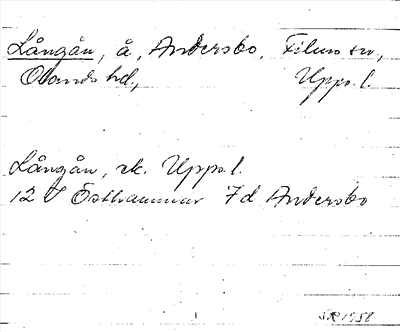 Långån, å, Andersbo, Films sn,
Olands hd, Upps. l.
Långån, ek. Upps. l.
12 I Östhammar 7d Andersbo
SR 1958